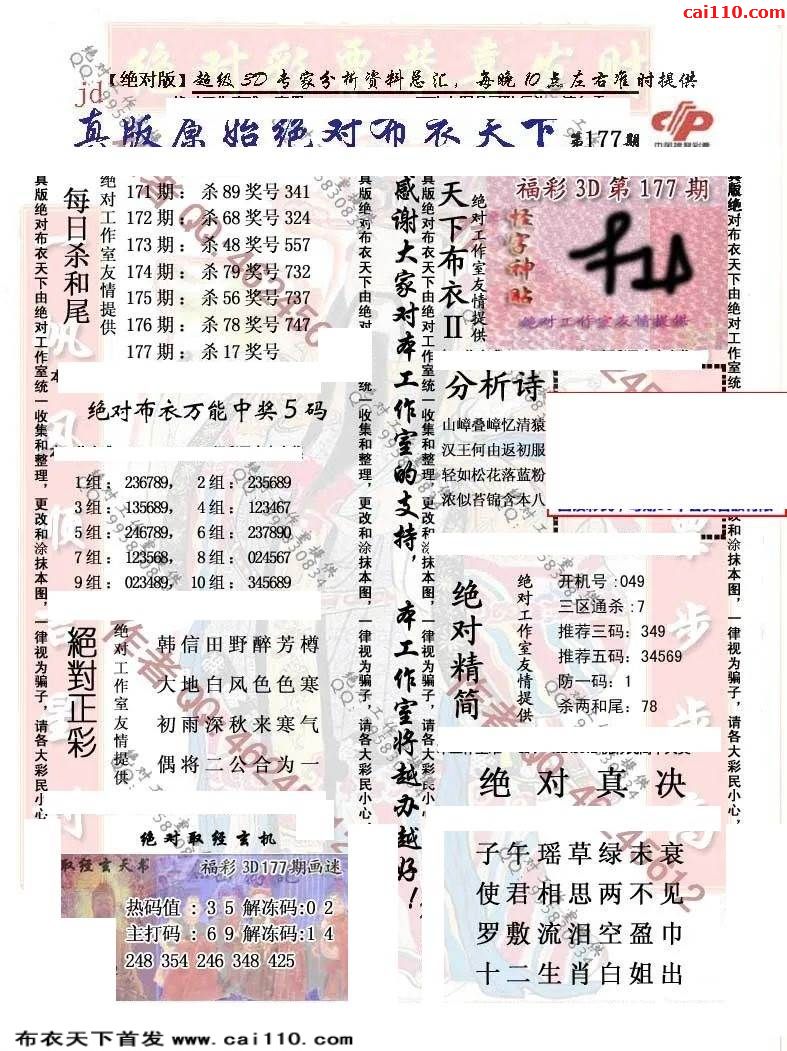 cai110.com
【绝对版】超级3D专家分析资料总汇，每晚10点左右准时提供
jd
真版原始绝对布衣天下 第177期
中国福利彩票
每日杀和尾
绝对工作室友情提供
171期：杀89奖号341
172期：杀68奖号324
173期：杀48奖号557
174期：杀79奖号732
175期：杀56奖号737
176期：杀78奖号747
177期：杀17奖号
绝对布衣万能中奖5码
1组：236789， 2组：235689
3组：135689， 4组：123467
5组：246789， 6组：237890
7组：123568， 8组：024567
9组：023489， 10组：345689
絕對正彩
绝对工作室友情提供
韩信田野醉芳樽
大地白风色色寒
初雨深秋来寒气
偶将二公合为一
绝对取经玄机
取经玄天书
福彩3D177期画迷
热码值：35解冻码:02
主打码：69解冻码:14
248 354 246 348 425
真版绝对布衣天下由绝对工作室统一收集和整理，更改和涂抹本图，一律视为骗子，请各大彩民小心，
感谢大家对本工作室的支持，本工作室将越办越好！
真版绝对布衣天下由绝对工作室统一收集和整理，更改和涂抹本图，一律视为骗子，请各大彩民小心，
天下布衣II
绝对工作室友情提供
福彩3D第177期
怪字神贴
绝对工作室友情提供
分析诗
山嶂叠嶂忆清猿
汉王何由返初服
轻如松花落蓝粉
浓似苔锦含本八
绝对精简
绝对工作室友情提供
开机号:049
三区通杀:7
推荐三码：349
推荐五码：34569
防一码：1
杀两和尾：78
绝对真决
子午瑶草绿未衰
使君相思两不见
罗敷流泪空盈巾
十二生肖白姐出
布衣天下首发 www.cai110.com